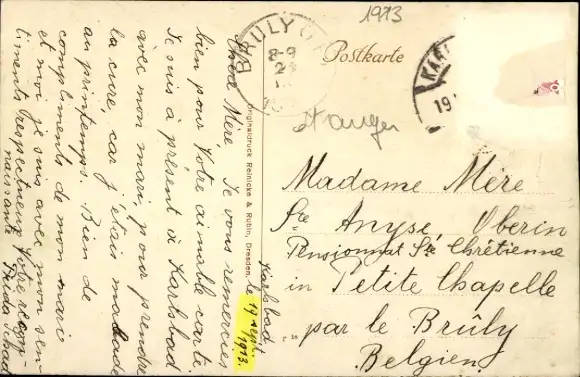 1973
Postkarte
BRULY
8-9
24
KARL
19
étranger
Madame Mère
Ste Anyse, Oberin
Pensionnat Ste Chrétienne
in Petite Chapelle
par le Brûly
Belgien
Originaldruck Reinicke & Rubin, Dresden.
Karlsbad,
le 19 sept.
1913.
Chère Mère, Je vous remercies
bien pour Votre aimable carte.
Je suis à présent à Karlsbad
avec mon mari, pour prendre
la cure, car j'étais malade
au printemps. Bien de
compliments de mon mari
et moi je suis avec mon sen-
timents respectueux Votre recon-
naissante
Frida